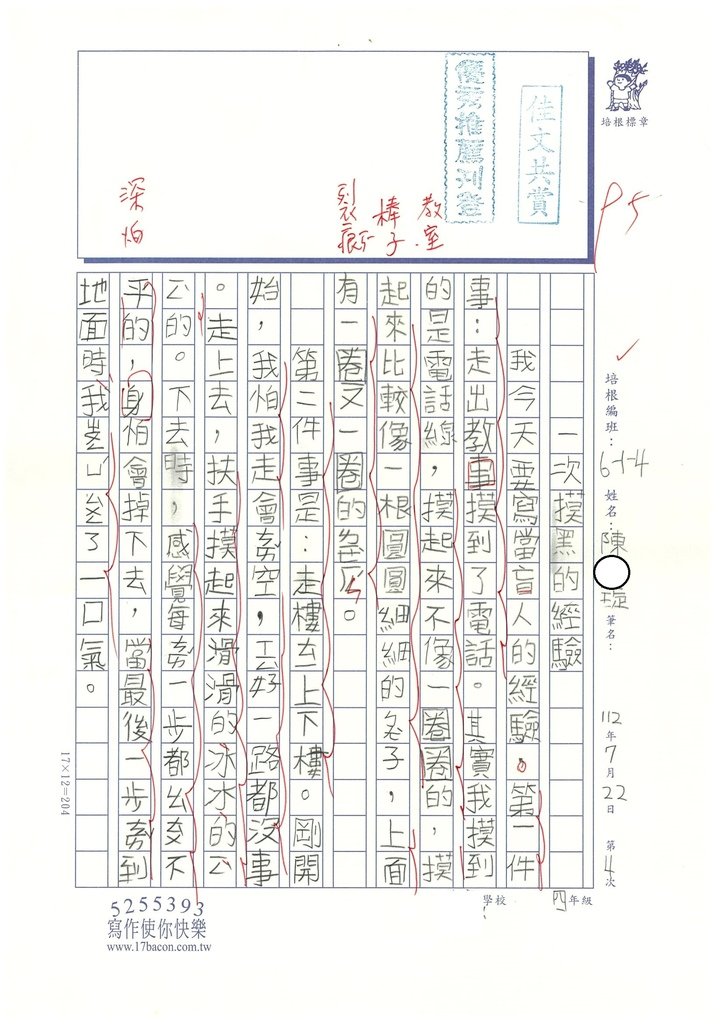 培根標章
佳文共賞
優秀推薦刊登
P5
教室
棒子
裂痕
深怕
培根編班:6-1-4 姓名:陳 璇 筆名: 112年7月22日 第4次
一次摸黑的經驗
我今天要寫當盲人的經驗。第一件
事:走出教事摸到了電話。其實我摸到
的是電話線,摸起來不像一圈圈的,摸
起來比較像一根圓圓細細的子,上面
有一圈又一圈的。
第二件事是:走樓ㄊㄧ上下樓。剛開
始,我怕我走會空,好一路都沒事
。走上去,扶手摸起來滑滑的冰冰的
的。下去時,感覺每一步都不
平的,身怕會掉下去,當最後一步到
地面時,我了一口氣。
17×12=204
學校 四年級
5255393
寫作使你快樂
www.17bacon.com.tw